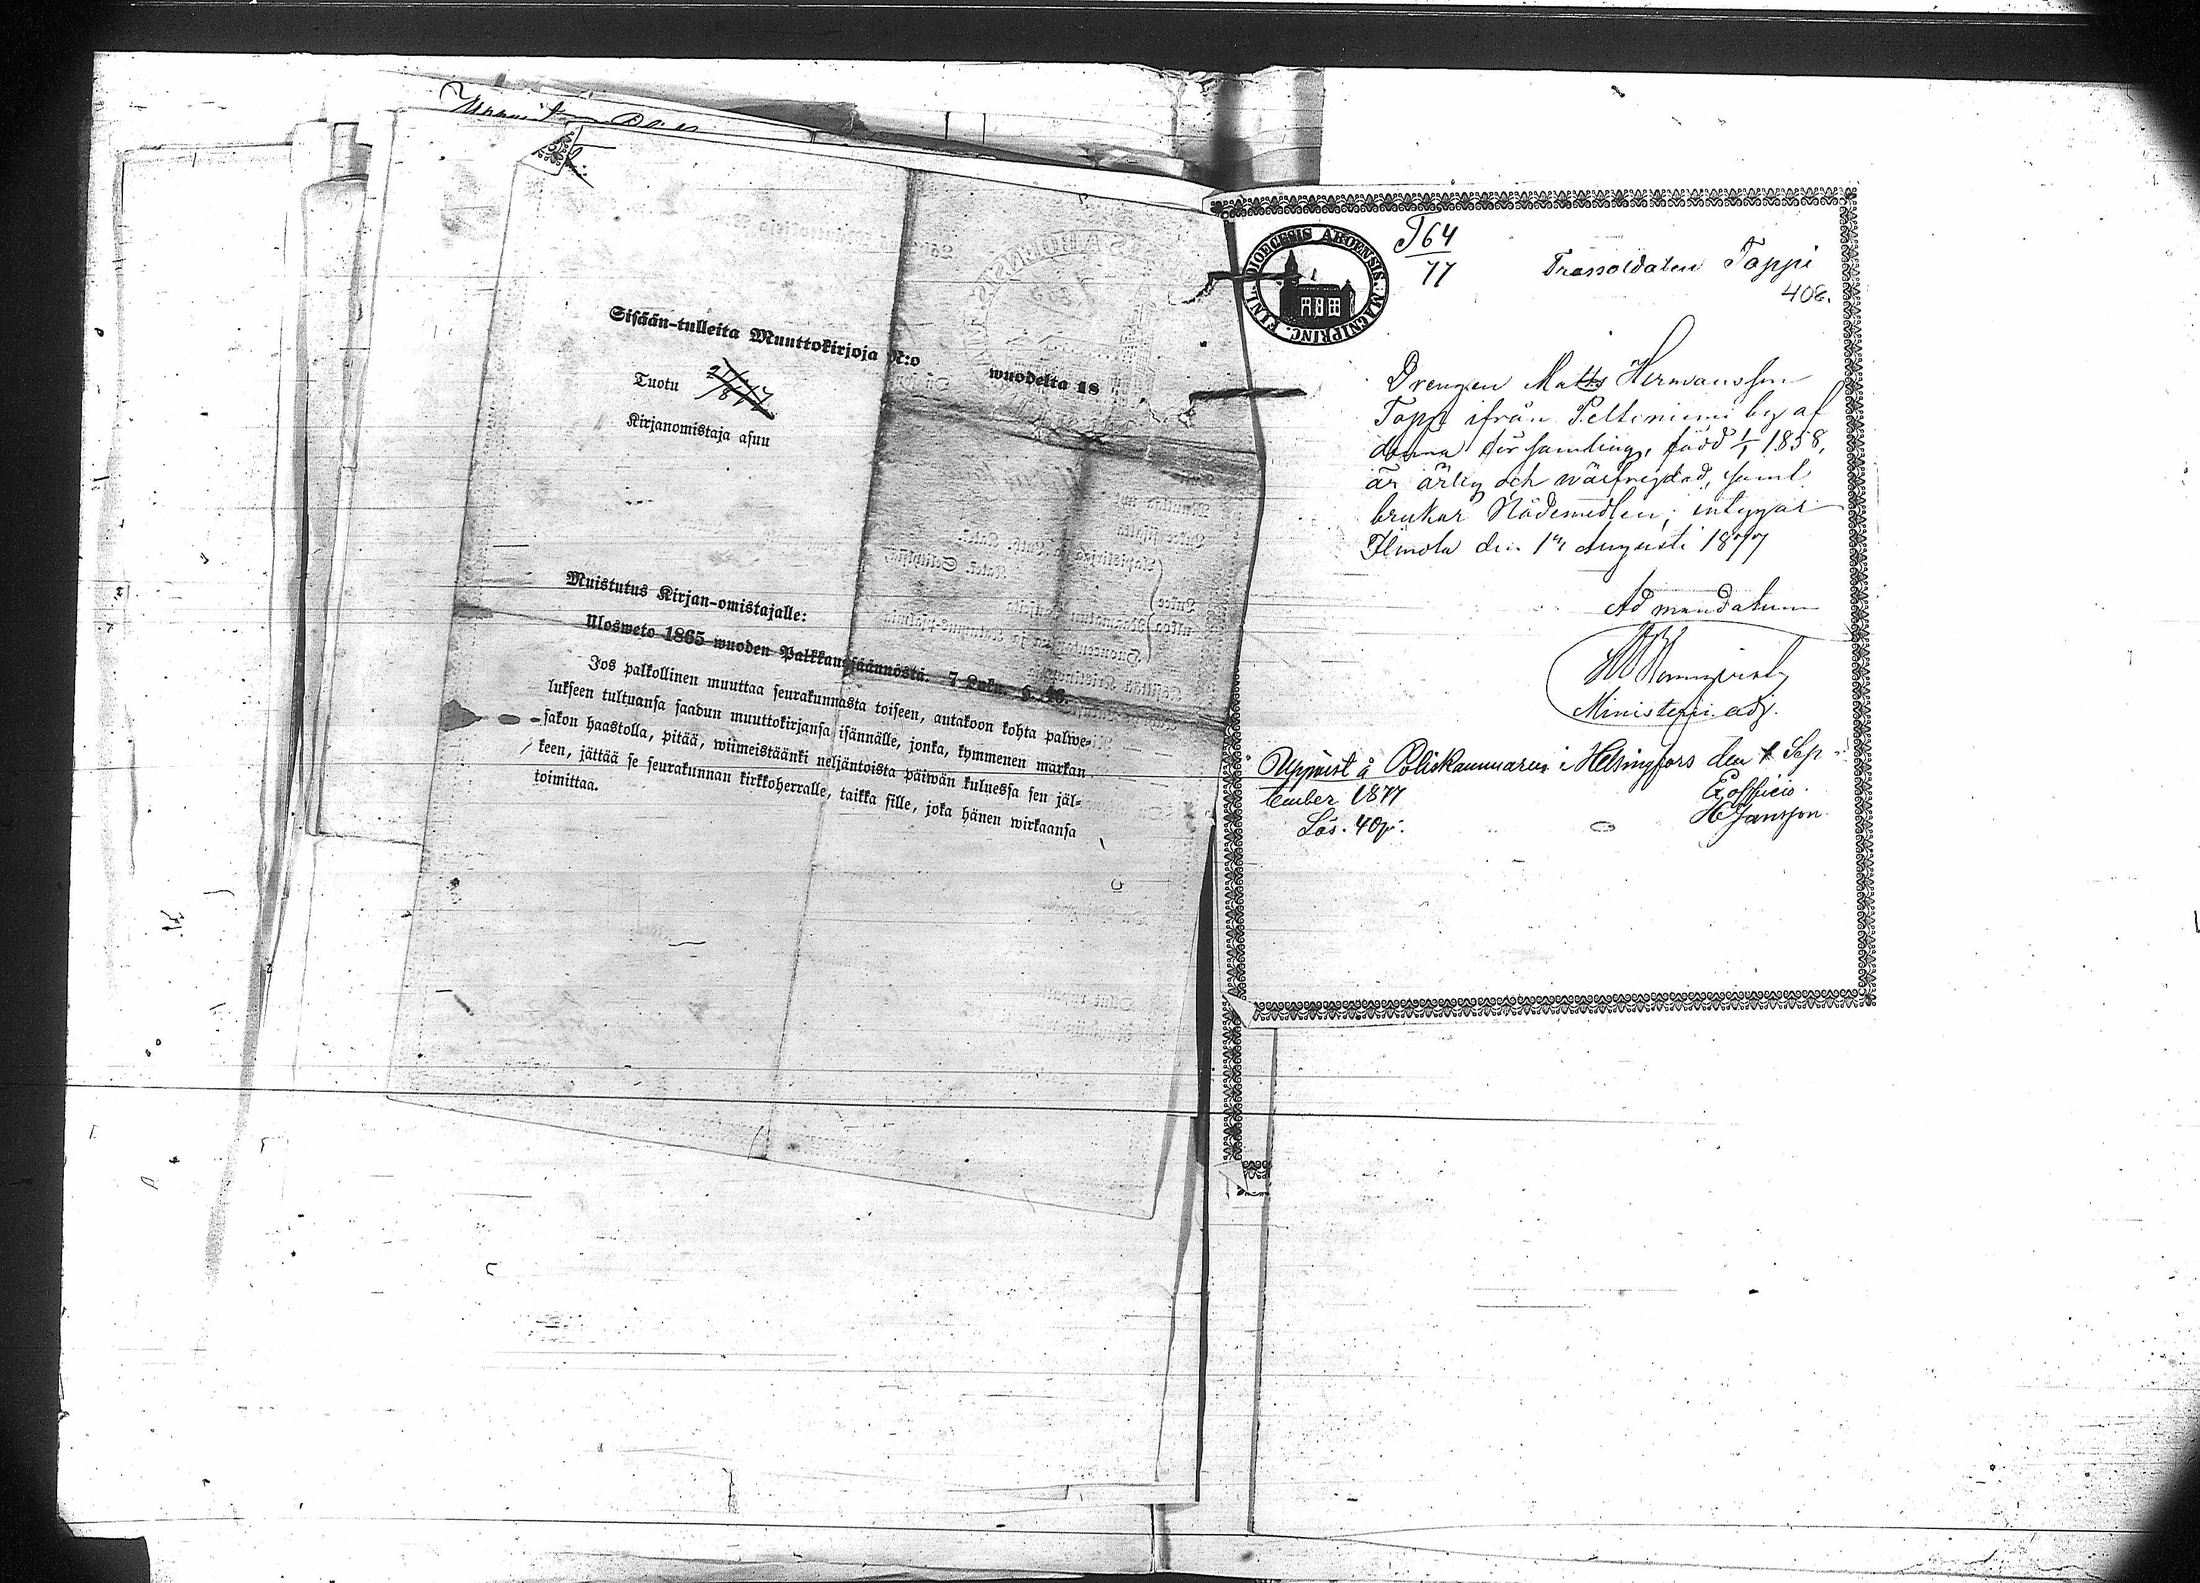 Sisään-tulleita Muuttokirjoja N:o wuodelta 18
Tuotu 27/8 77
Kirjanomistaja asuu
Muistutus Kirjan-omistajalle:
Ulosweto 1865 wuoden Palkkaussäännöstä. 7 Luku. §. 46.
Jos palkollinen muuttaa seurakunnasta toiseen, antakoon kohta palwe-
lukseen tultuansa saadun muuttokirjansa isännälle, jonka, kymmenen markan
sakon haastolla, pitää, wiimeistäänki neljäntoista päiwän kuluessa sen jäl-
keen, jättää se seurakunnan kirkkoherralle, taikka sille, joka hänen wirkaansa
toimittaa.
DIOECESIS ABOENSIS. MAGNIPRINC. FINL.
T64
77
Trossoldaten Toppi
408.
Drengen Matts Hermansson
Toppi ifrån Peltoniemi by af
denna församling, född 1/1 1858,
är ärlig och wälfrejdad, samt
brukar Nådemedlen; intygar
Ilmola den 1 Augusti 1877
Ad mandatum
Ministerii adj.
Uppvist å Poliskammaren i Helsingfors den 1 Sep-
tember 1877
Ex officio.
Lös. 40 p:.
H Jansson.